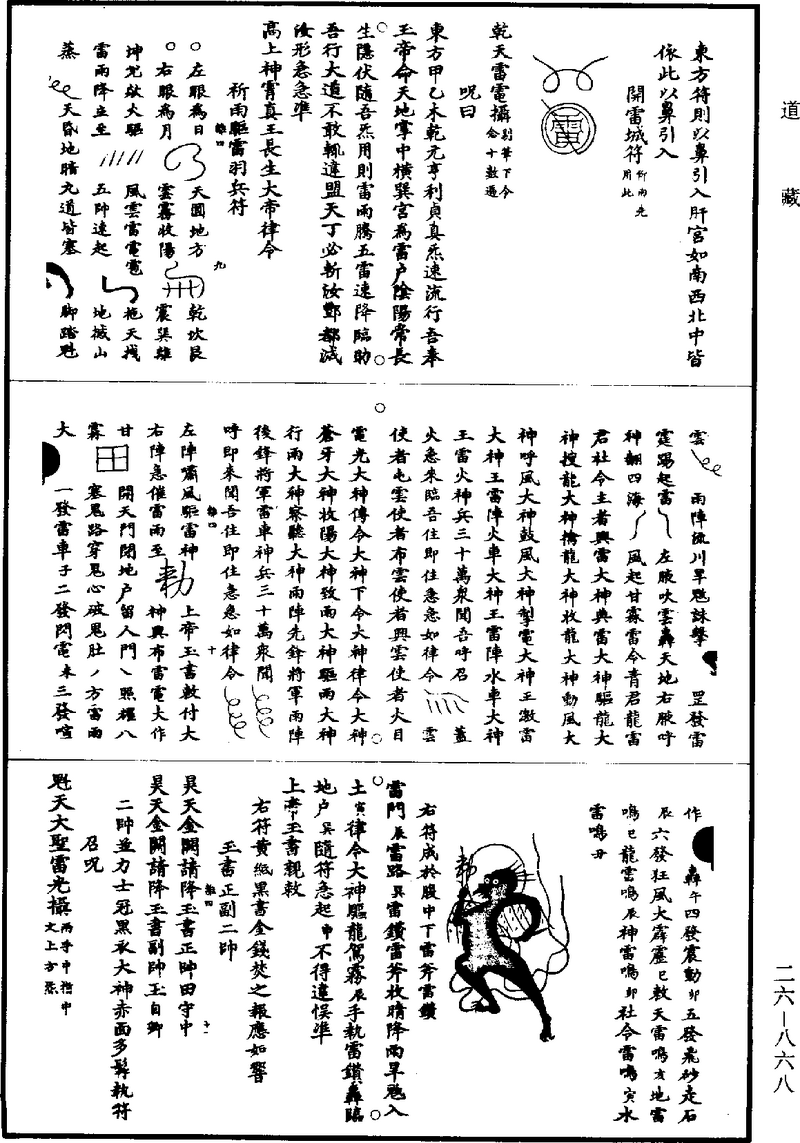 道藏
東方符則以鼻引入肝宮如南西北中皆
依此以鼻引入
開雷城符祈雨先用此
乾天雷電攝
咒曰
東方甲乙木乾元亨利貞真炁速流行吾奉
玉帝命天地掌中橫巽宮為雷户陰陽常長
生隱伏隨吾炁用則雷雨騰五雷速降臨助
吾行大道不敢輒違盟天丁必斬汝酆都滅
汝形急急準
高上神霄真王長生大帝律令
祈雨驅雷羽兵符
左眼為日 天圓地方 乾坎艮
右眼為月 雲霧收陽 震巽離
坤兌欻火驅 風雲雷電 拖天拽
雷雨降立至 五帥速起 地撼山
蒸 天昏地暗九道皆塞 脚踏魁
雲 雨陣流川旱魃誅擊 罡發雷
霆踢起雷 左腋吹雲轟天地右腋呼
神翻四海 風起甘霖雷令青君龍雷
君社令主者興雷大神典雷大神驅龍大
神搜龍大神擒龍大神收龍大神動風大
神呼風大神鼓風大神掣電大神玉激雷
大神王雷陣火車大神王雷陣水車大神
王雷火神兵三十萬衆聞吾呼召 蓋
火急來臨吾住即住急急如律令 雲
使者屯雲使者布雲使者興雲使者火目
電光大神傳令大神下令大神律令大神
蒼牙大神收陽大神致雨大神驅雨大神
行雨大神察聽大神雨陣先鋒將軍雨陣
後鋒將軍雷車神兵三十萬衆聞
呼即來聞吾住即住急急如律令
左陣嘯風驅雷神 上帝玉書敕付大
右陣急催雷雨至 勑 神興布雷電大作
甘 開天門閉地户留人門 照耀八
霖 塞鬼路穿鬼心破鬼肚 方雷雨
大 一發雷車子二發閃電未三發喧
作 轟午四發震動卯五發飛砂走石
辰六發狂風大霹靂巳敕天雷鳴亥地雷
鳴巳龍雲鳴辰神雷鳴卯社令雷鳴寅水
雷鳴丑
右符成於腹中下雷斧雷鑽
雷門辰雷路巽雷鑽雷斧收晴降雨旱魃入
土寅律令大神驅龍駕霧辰手執雷鑽轟臨
地户巽隨符急起申不得違悮準
上帝玉書親敕
右符黄紙黑書金錢焚之報應如響
玉書正副二帥
昊天金闕請降玉書正帥田守中
昊天金闕請降玉書副帥玉自卿
二帥並力士冠黑承大神赤面多髯執符
召咒
魁天大聖雷光攝
二六—八六八